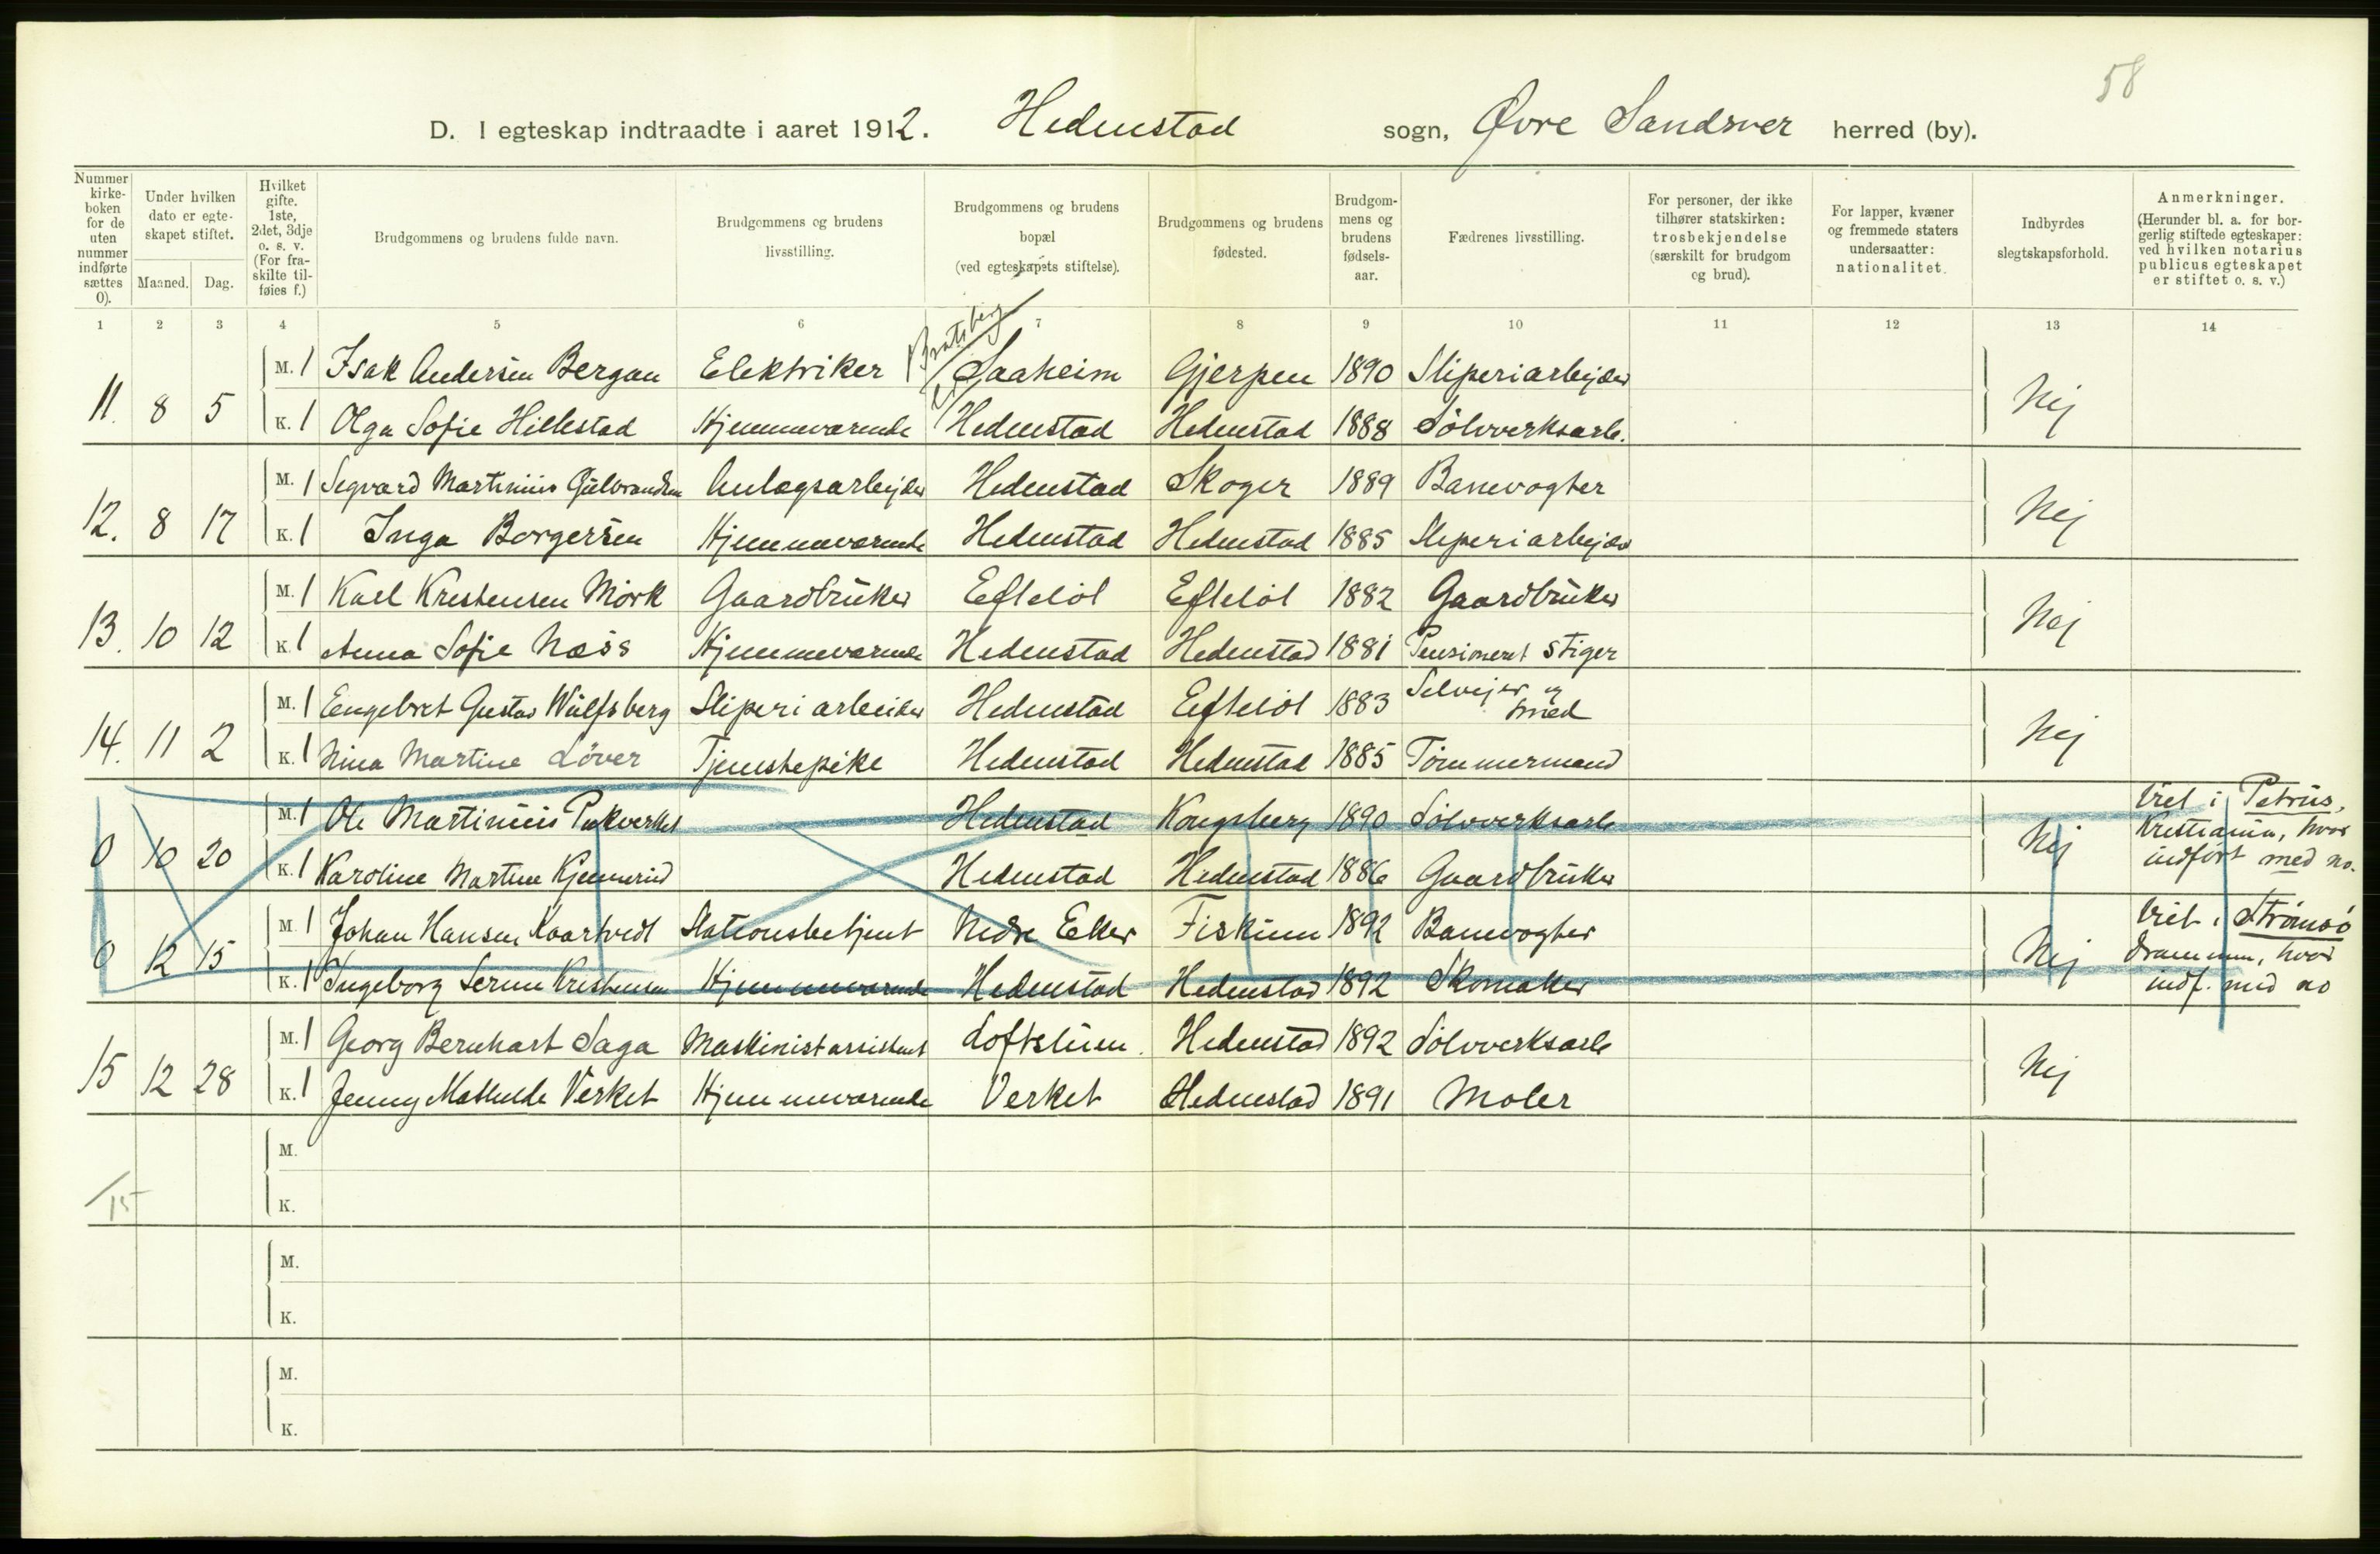 58
D. I egteskap indtraadte i aaret 1912. Hedenstad sogn, Øvre Sandsver herred (by).
Nummer kirke-boken for de uten nummer indførte sættes 0).
Under hvilken dato er egte-skapet stiftet.
Maaned. Dag.
Hvilket gifte. 1ste, 2det, 3dje o. s. v. (For fra-skilte til-føies f.)
Brudgommens og brudens fulde navn.
Brudgommens og brudens livsstilling.
Brudgommens og brudens bopæl (ved egteskapets stiftelse).
Brudgommens og brudens fødested.
Brudgom-mens og brudens fødsels-aar.
Fædrenes livsstilling.
For personer, der ikke tilhører statskirken: trosbekjendelse (særskilt for brudgom og brud).
For lapper, kvæner og fremmede staters undersaatter: nationalitet.
Indbyrdes slegtskapsforhold.
Anmerkninger. (Herunder bl. a. for bor-gerlig stiftede egteskaper: ved hvilken notarius publicus egteskapet er stiftet o. s. v.)
1 2 3 4 5 6 7 8 9 10 11 12 13 14
Bratsberg
M. 1 Isak Andersen Bergan Elektriker Saaheim Gjerpen 1890 Sliperiarbejder
11. 8 5 Nej
K. 1 Olga Sofie Hillestad Hjemmeværende Hedenstad Hedenstad 1888 Sølvverksarb.
M. 1 Segvard Martinius Gulbrandsen Anlægsarbejder Hedenstad Skoger 1889 Banevogter
12. 8 17 Nej
K. 1 Inga Borgersen Hjemmeværende Hedenstad Hedenstad 1885 Sliperiarbejder
M. 1 Karl Kristensen Mørk Gaardbruker Efteløt Efteløt 1882 Gaardbruker
13. 10 12 Nej
K. 1 Anna Sofie Næss Hjemmeværende Hedenstad Hedenstad 1881 Pensioneret Stiger
M. 1 Engebret Gustav Wulfsberg Sliperiarbeider Hedenstad Efteløt 1883 Selvejer og smed
14. 11 2 Nej
K. 1 Nina Martine Løver Tjenestepike Hedenstad Hedenstad 1885 Tømmermand
M. 1 Ole Martinius Pukverket Hedenstad Kongsberg 1890 Sølvverksarb
0 10 20 Nej Viet i Petrus, Kristiania, hvor indført med no.
K. 1 Karoline Martine Kjennerud Hedenstad Hedenstad 1886 Gaardbruker
M. 1 Johan Hansen Kaartvedt Stationsbetjent Nedre Eker Fiskum 1892 Banevogter
0 12 15 Nej Viet i Strømsø Drammen, hvor indf. med no
K. 1 Ingeborg Serine Kristensen Hjemmeværende Hedenstad Hedenstad 1892 Skomaker
M. 1 Georg Bernhart Saga Maskinistassistent Loftsluen. Hedenstad 1892 Sølvverksarb
15 12 28 Nej
K. 1 Jenny Mathilde Verket Hjemmeværende Verket Hedenstad 1891 Maler
M.
/15
K.
M.
K.
M.
K.